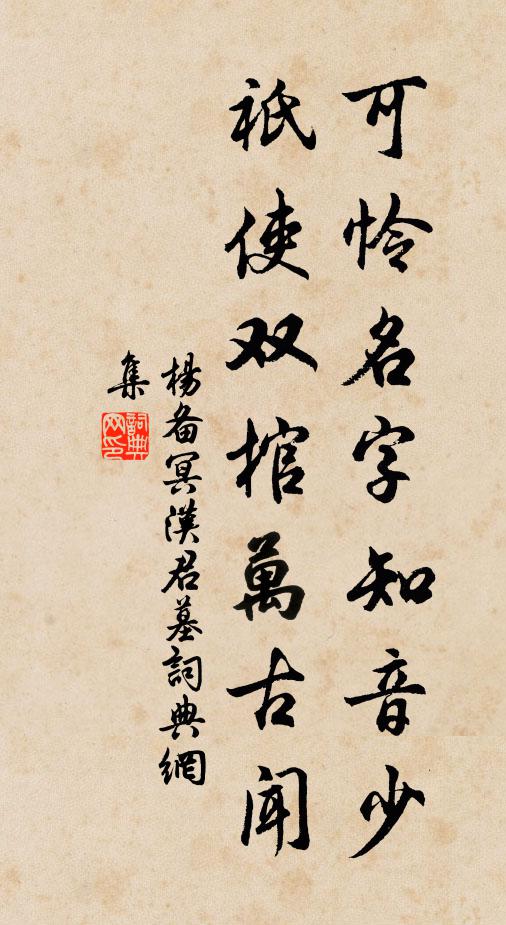 可怜名字知音少
祇使双棺萬古闻
楊备冥漠君墓詞典網
集
詞典
网印